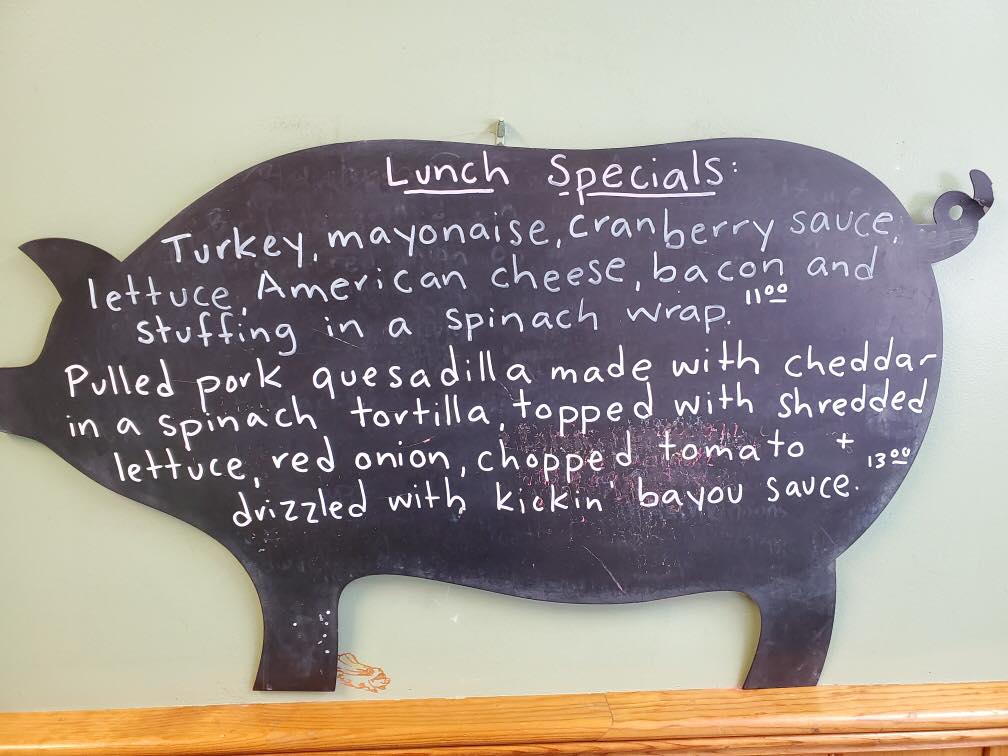 Lunch Specials:
Turkey, mayonaise, cranberry sauce,
lettuce, American cheese, bacon and
stuffing in a spinach wrap. 11⁰⁰
Pulled pork quesadilla made with cheddar
in a spinach tortilla, topped with shredded
lettuce, red onion, chopped tomato + 13⁰⁰
drizzled with kickin' bayou sauce.